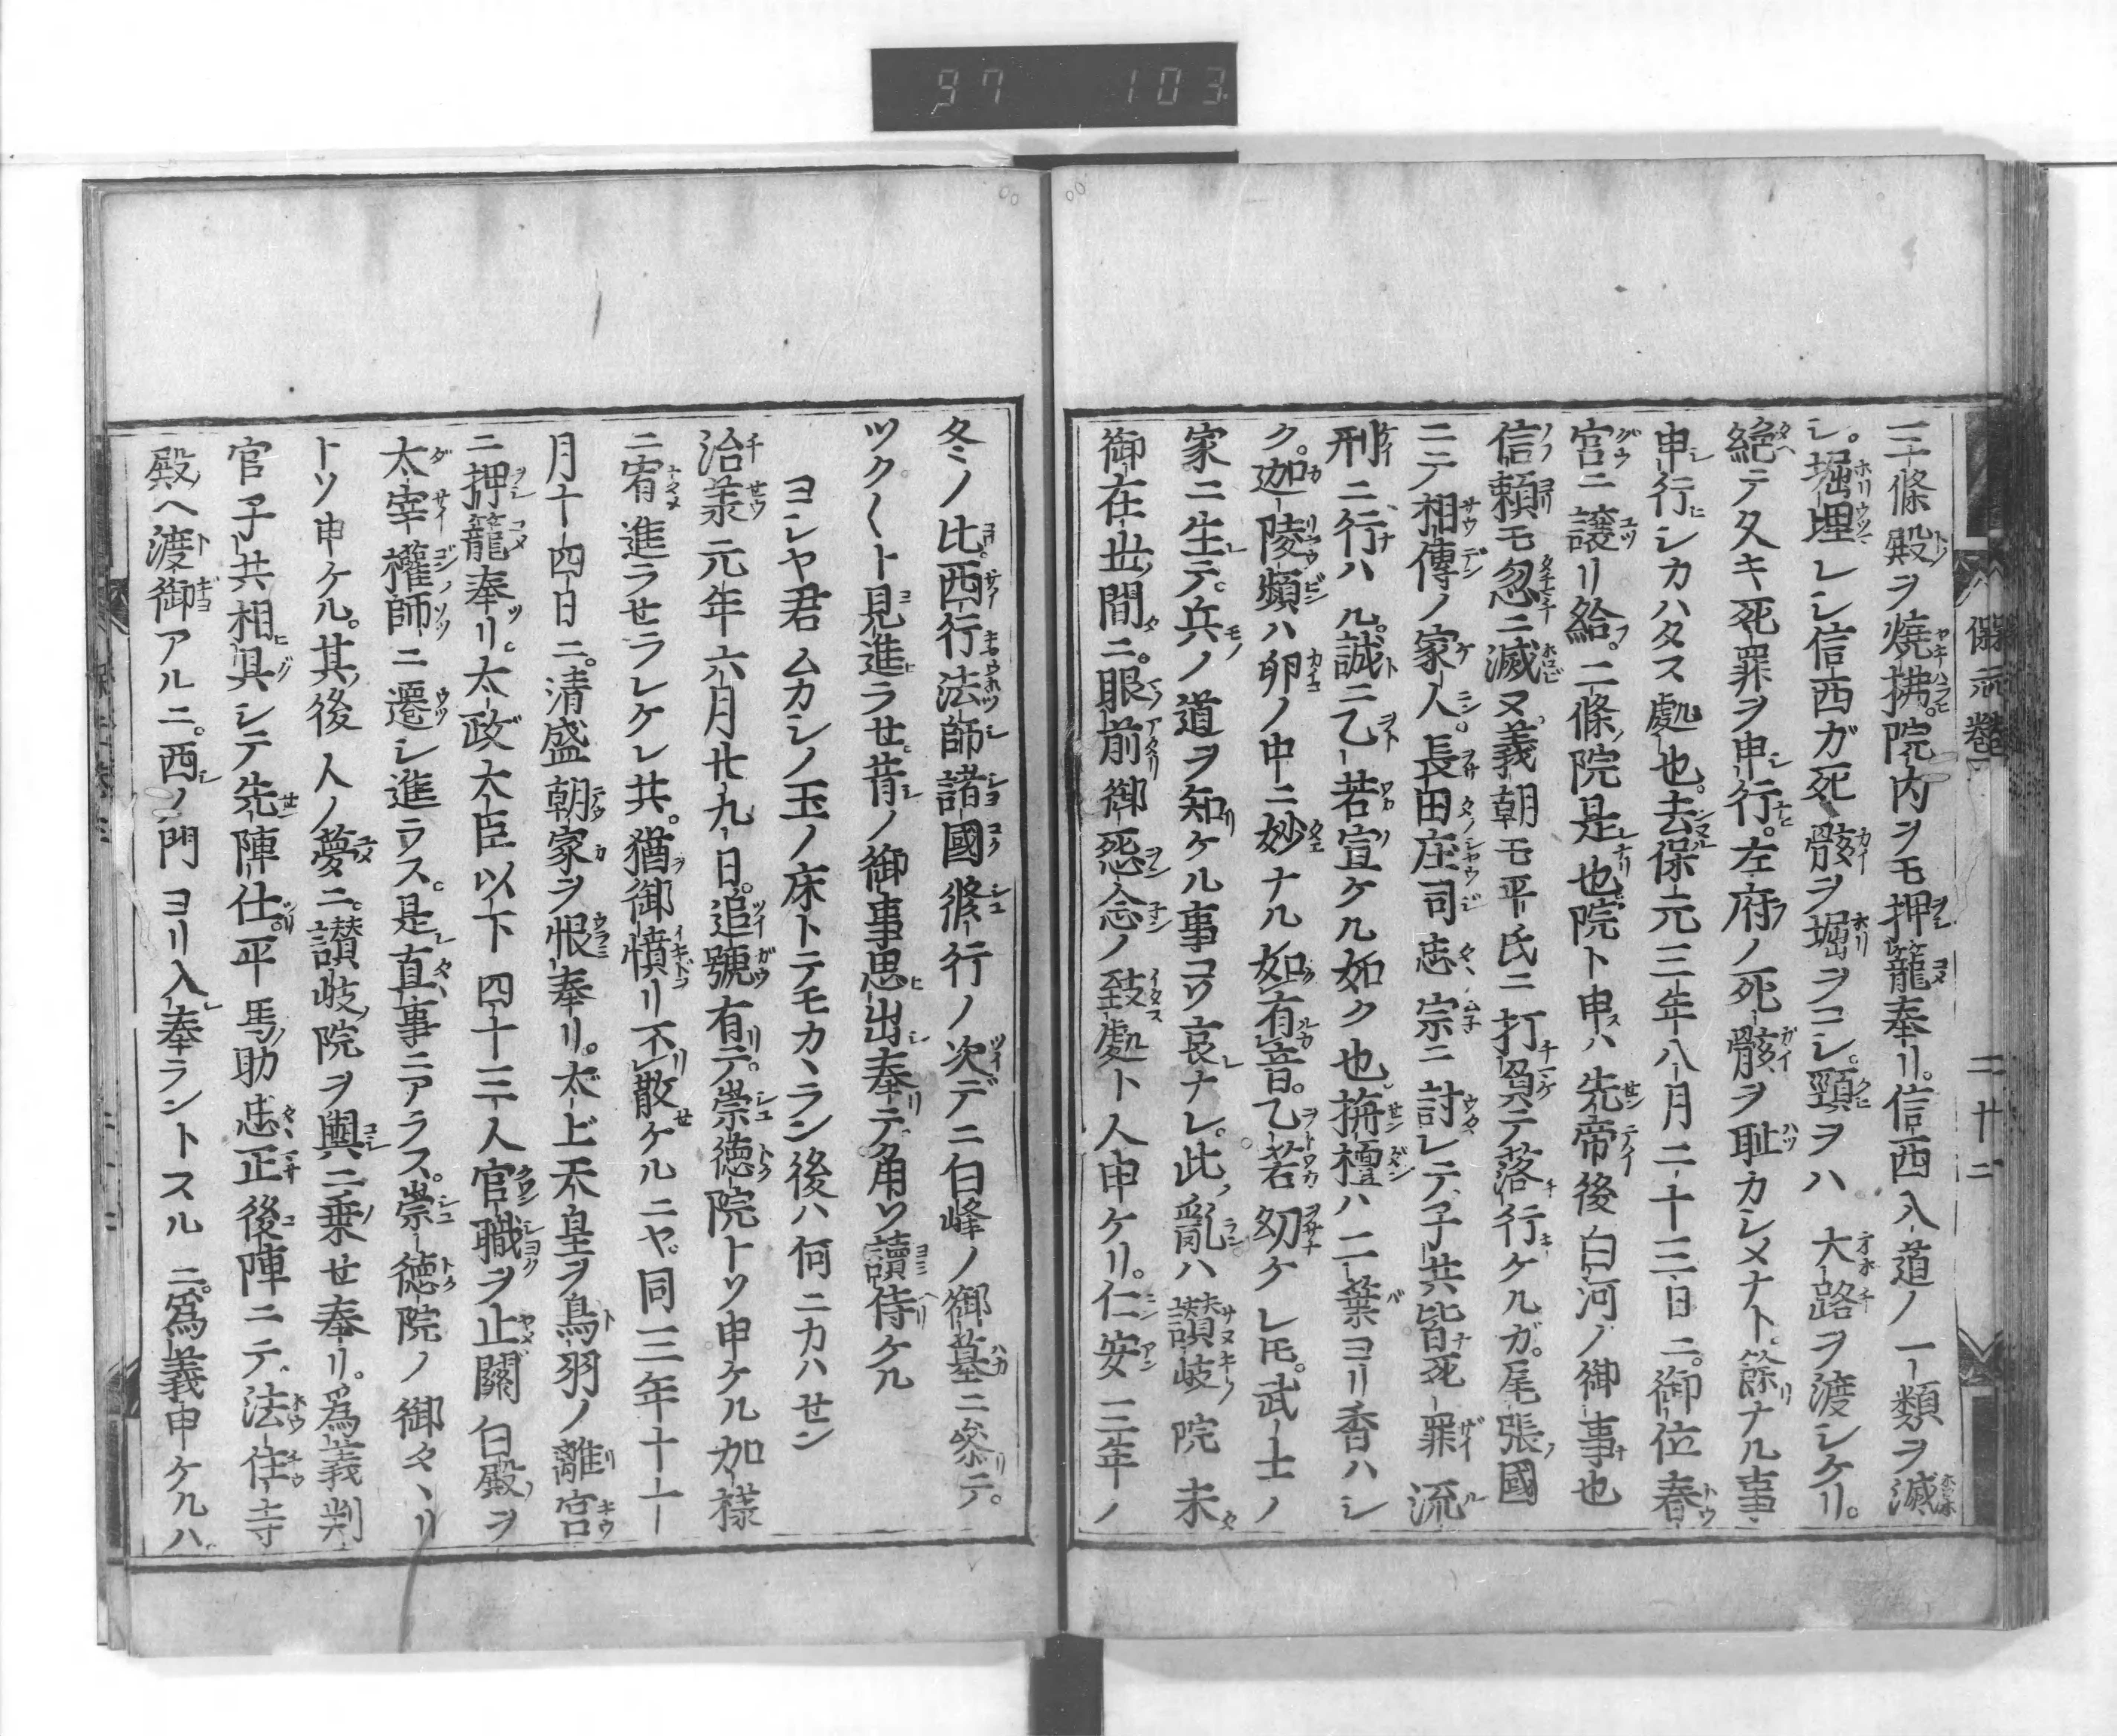 97 103
保元卷三 二十二
三條殿ヲ燒拂院内ヲモ押籠奉リ。信西入道ノ一類ヲ滅
シ。堀埋レシ信西ガ死骸ヲ堀ヲコシ。頸ヲハ大路ヲ渡シケリ。
絶テ久キ死罪ヲ申行。左府ノ死骸ヲ耻カシメナト。餘ナル事
申行シカハタス處也。去保元三年八月二十三日ニ。御位春
宮ニ譲リ給。二條院是也。院ト申ハ先帝後白河ノ御事也
信頼モ忽ニ滅ヌ。義朝モ平氏ニ打負テ落行ケルガ。尾張國
ニテ相傳ノ家人。長田庄司忠宗ニ討レテ子共皆死罪流
刑ニ行ハル。誠ニ乙若宣ケル如ク也。栴檀ハ二葉ヨリ香ハシ
ク。迦陵頻ハ卵ノ中ニ妙ナル如有音。乙若幼ケレ𪜈。武士ノ
家ニ生テ。兵ノ道ヲ知ケル事コソ哀ナレ。此亂ハ讃岐院未
御在世間ニ。眼前御怨念ノ致處ト人申ケリ。仁安三年ノ
冬ノ比。西行法師諸國修行ノ次デニ白峰ノ御墓ニ參テ。
ツク〳〵ト見進ラセ昔ノ御事思出奉テ角ソ讀侍ケル
ヨシヤ君ムカシノ玉ノ床トテモカヽラン後ハ何ニカハセン
治承元年六月廿九日。追號有テ。崇徳院トソ申ケル加様
ニ宥進ラセラレケレ共。猶御憤リ不散ケルニヤ。同三年十一
月十四日ニ。清盛朝家ヲ恨奉リ。太上天皇ヲ鳥羽ノ離宮
ニ押籠奉リ。太政大臣以下四十三人官職ヲ止關白殿ヲ
太宰權師ニ遷シ進ラス。是直事ニアラス。崇徳院ノ御タヽリ
トソ申ケル。其後人ノ夢ニ。讃岐院ヲ輿ニ乗セ奉リ。爲義判
官子共相具シテ先陣仕。平馬助忠正後陣ニテ。法住寺
殿ヘ渡御アルニ。西ノ門ヨリ入奉ラントスルニ。爲義申ケルハ